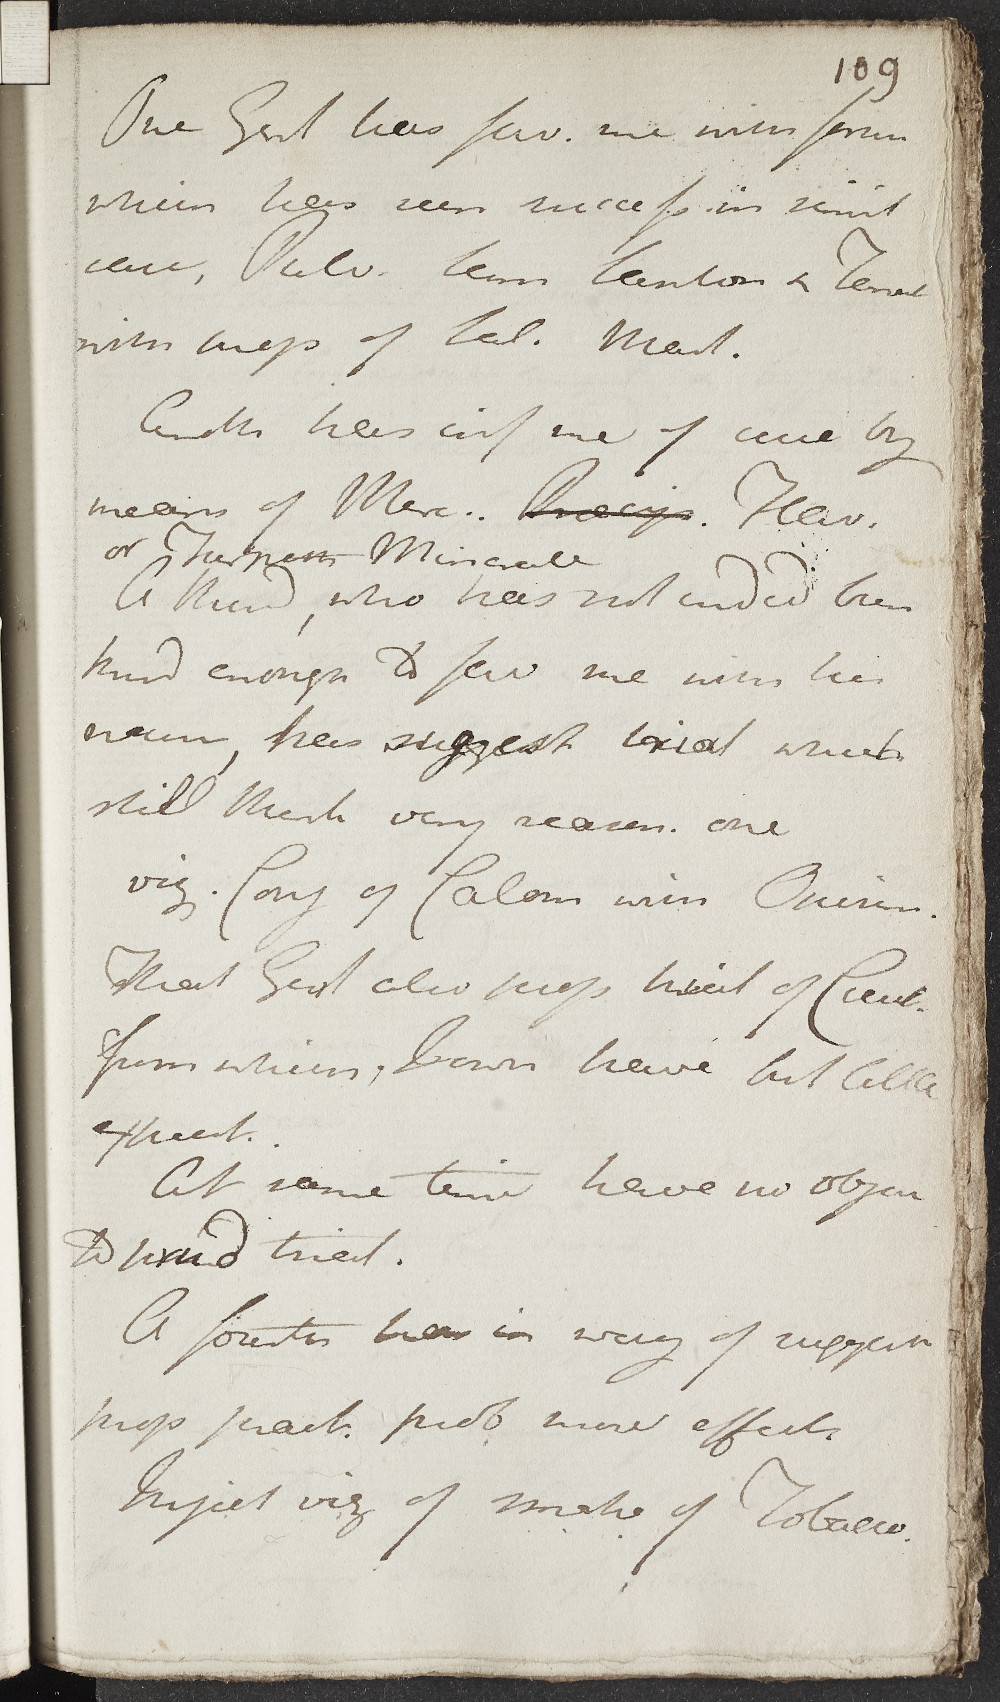 109
One Gent has fav. me with form
which has seen success in simil
case, Pulv. Cum
with props of Cal. Mart.
Anoth has inf me of cure by
means of Merc.. Precip. Flav.
or Turpeth Minerale
A third, who has not indeed been
kind enough to fav me with his
name, has suggest trial which
still think very reason. one
viz. Conj of Calom with
That Gent also props trial of
from which, I own have but little
expect..
At same time have no objec
to trial.
A fourth has in way of suggest
props pract. prob more effect.
Inject viz of smoke of Tobacco.